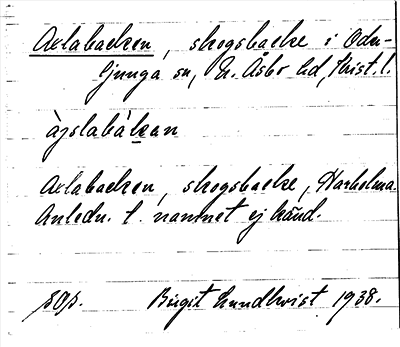 Axlabacken, skogsbacke i Oder-
ljunga sn, N. Åsbo hd, Krist. l.
àɡslabák̲an
Axlabacken, skogsbacke, Harholma.
Anledn. t. namnet ej känd.
Birgit Lundkvist 1938.